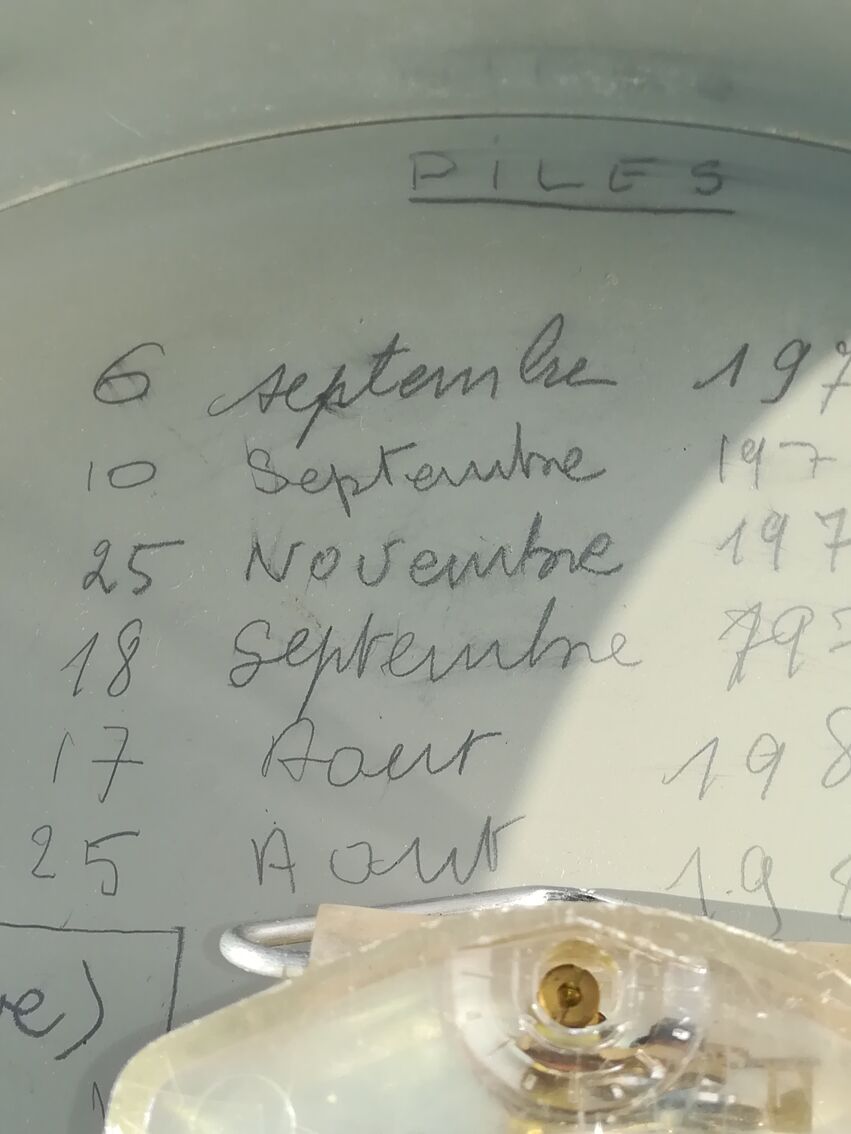 PILES
6 septembre 197
10 Septembre 197
25 Novembre 197
18 Septembre 197
17 Aout 198
25 Aout 198
e)